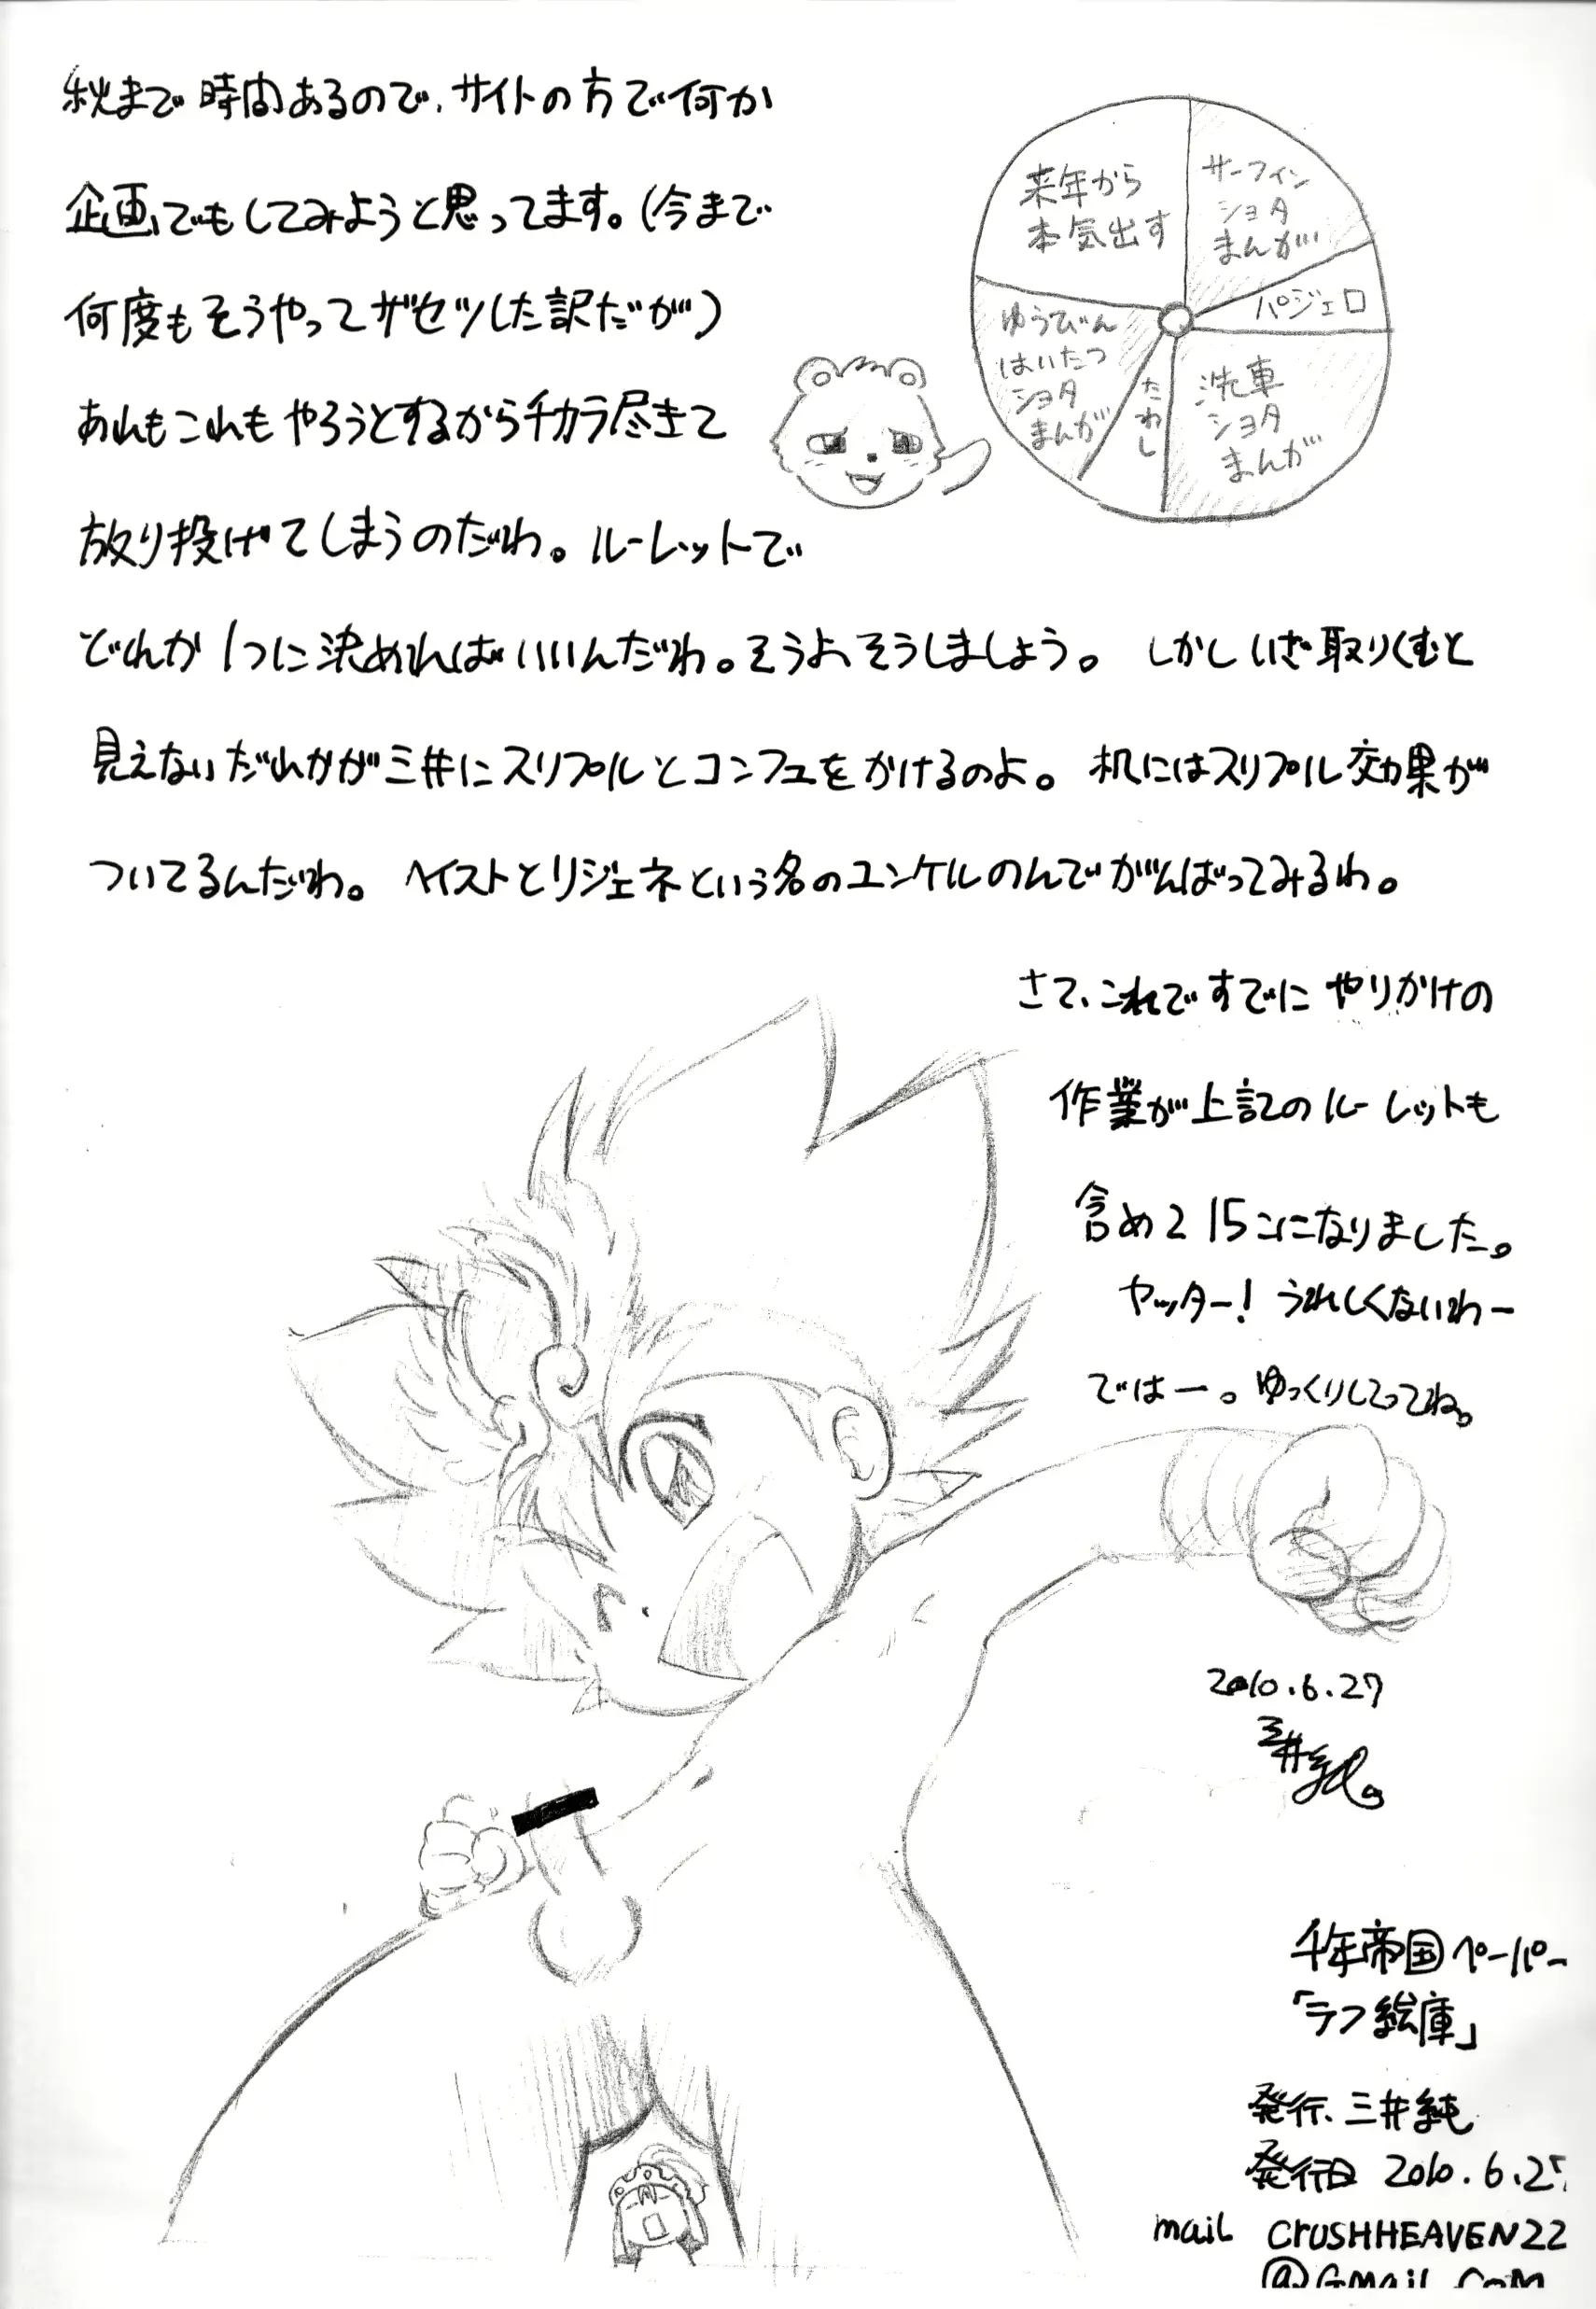 秋まで時間あるので、サイトの方で何か
企画でもしてみようと思ってます。(今まで
何度もそうやってザセツした訳だが)
あれもこれもやろうとするからチカラ尽きて
放り投げてしまうのだわ。ルーレットで
どれか1つに決めればいいんだわ。そうよ、そうしましょう。 しかしいざ取りくむと
見えないだれかが三井にスリプルとコンフュをかけるのよ。 机にはスリプル効果が
ついてるんだわ。 ヘイストとリジェネという名のユンケルのんでがんばってみるわ。
来年から
本気出す
サーフィン
ショタ
まんが
パジェロ
洗車
ショタ
まんが
たわし
ゆうびん
はいたつ
ショタ
まんが
さて、これですでにやりかけの
作業が上記のルーレットも
含めて15コになりました。
ヤッター! うれしくないわー
ではー。ゆっくりしてってね。
2010.6.27
三井純
千年帝国ペーパー
「ラフ絵庫」
発行、三井純
発行日 2010.6.27
mail CrUSHHEAVEN22
@GMail.CoM